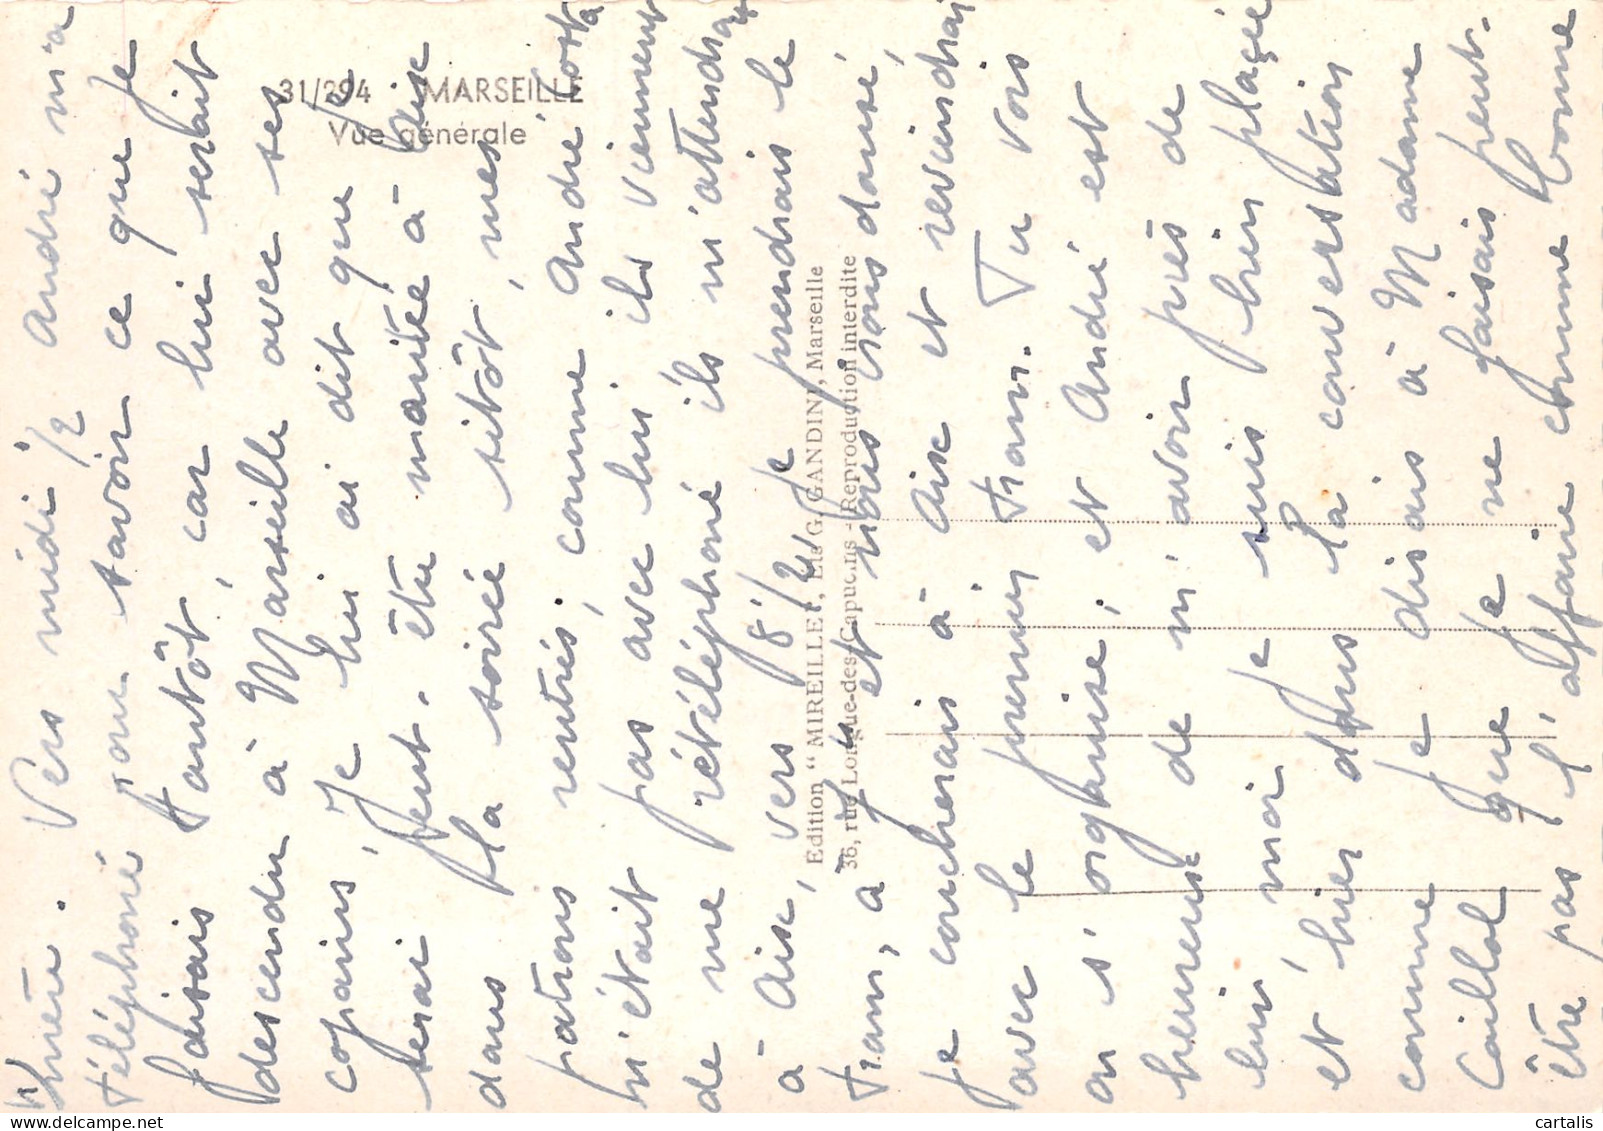 31/294 MARSEILLE
Vue générale
Edition "MIREILLE", Ets G. GANDINI, Marseille
36, rue Longue-des-Capucins - Reproduction interdite
4)
thieu. Vers midi 1/2 André m'a
téléphoné pour savoir ce que je
faisais tantôt, car lui serait
descendu à Marseille avec ses
copains, je lui ai dit que je
serai peut-être montée à Aix
dans la soirée sitôt, mes
patrons rentrés, comme André Costa
n'était pas avec lui ils viennent
de me rételéphoné ils m'attendrait
à Aix, vers 8 1/2 je prendrais le
tram, à et nous irons dansé,
je coucherais à Aix et reviendrai
avec le premier tram. Tu vois
on s'organise, et André est
heureux de m'avoir près de
lui, moi je suis bien placée
et hier dans la conversation
comme je disais à Madame
Caillol que je ne faisais peut-
être pas l'affaire comme bonne